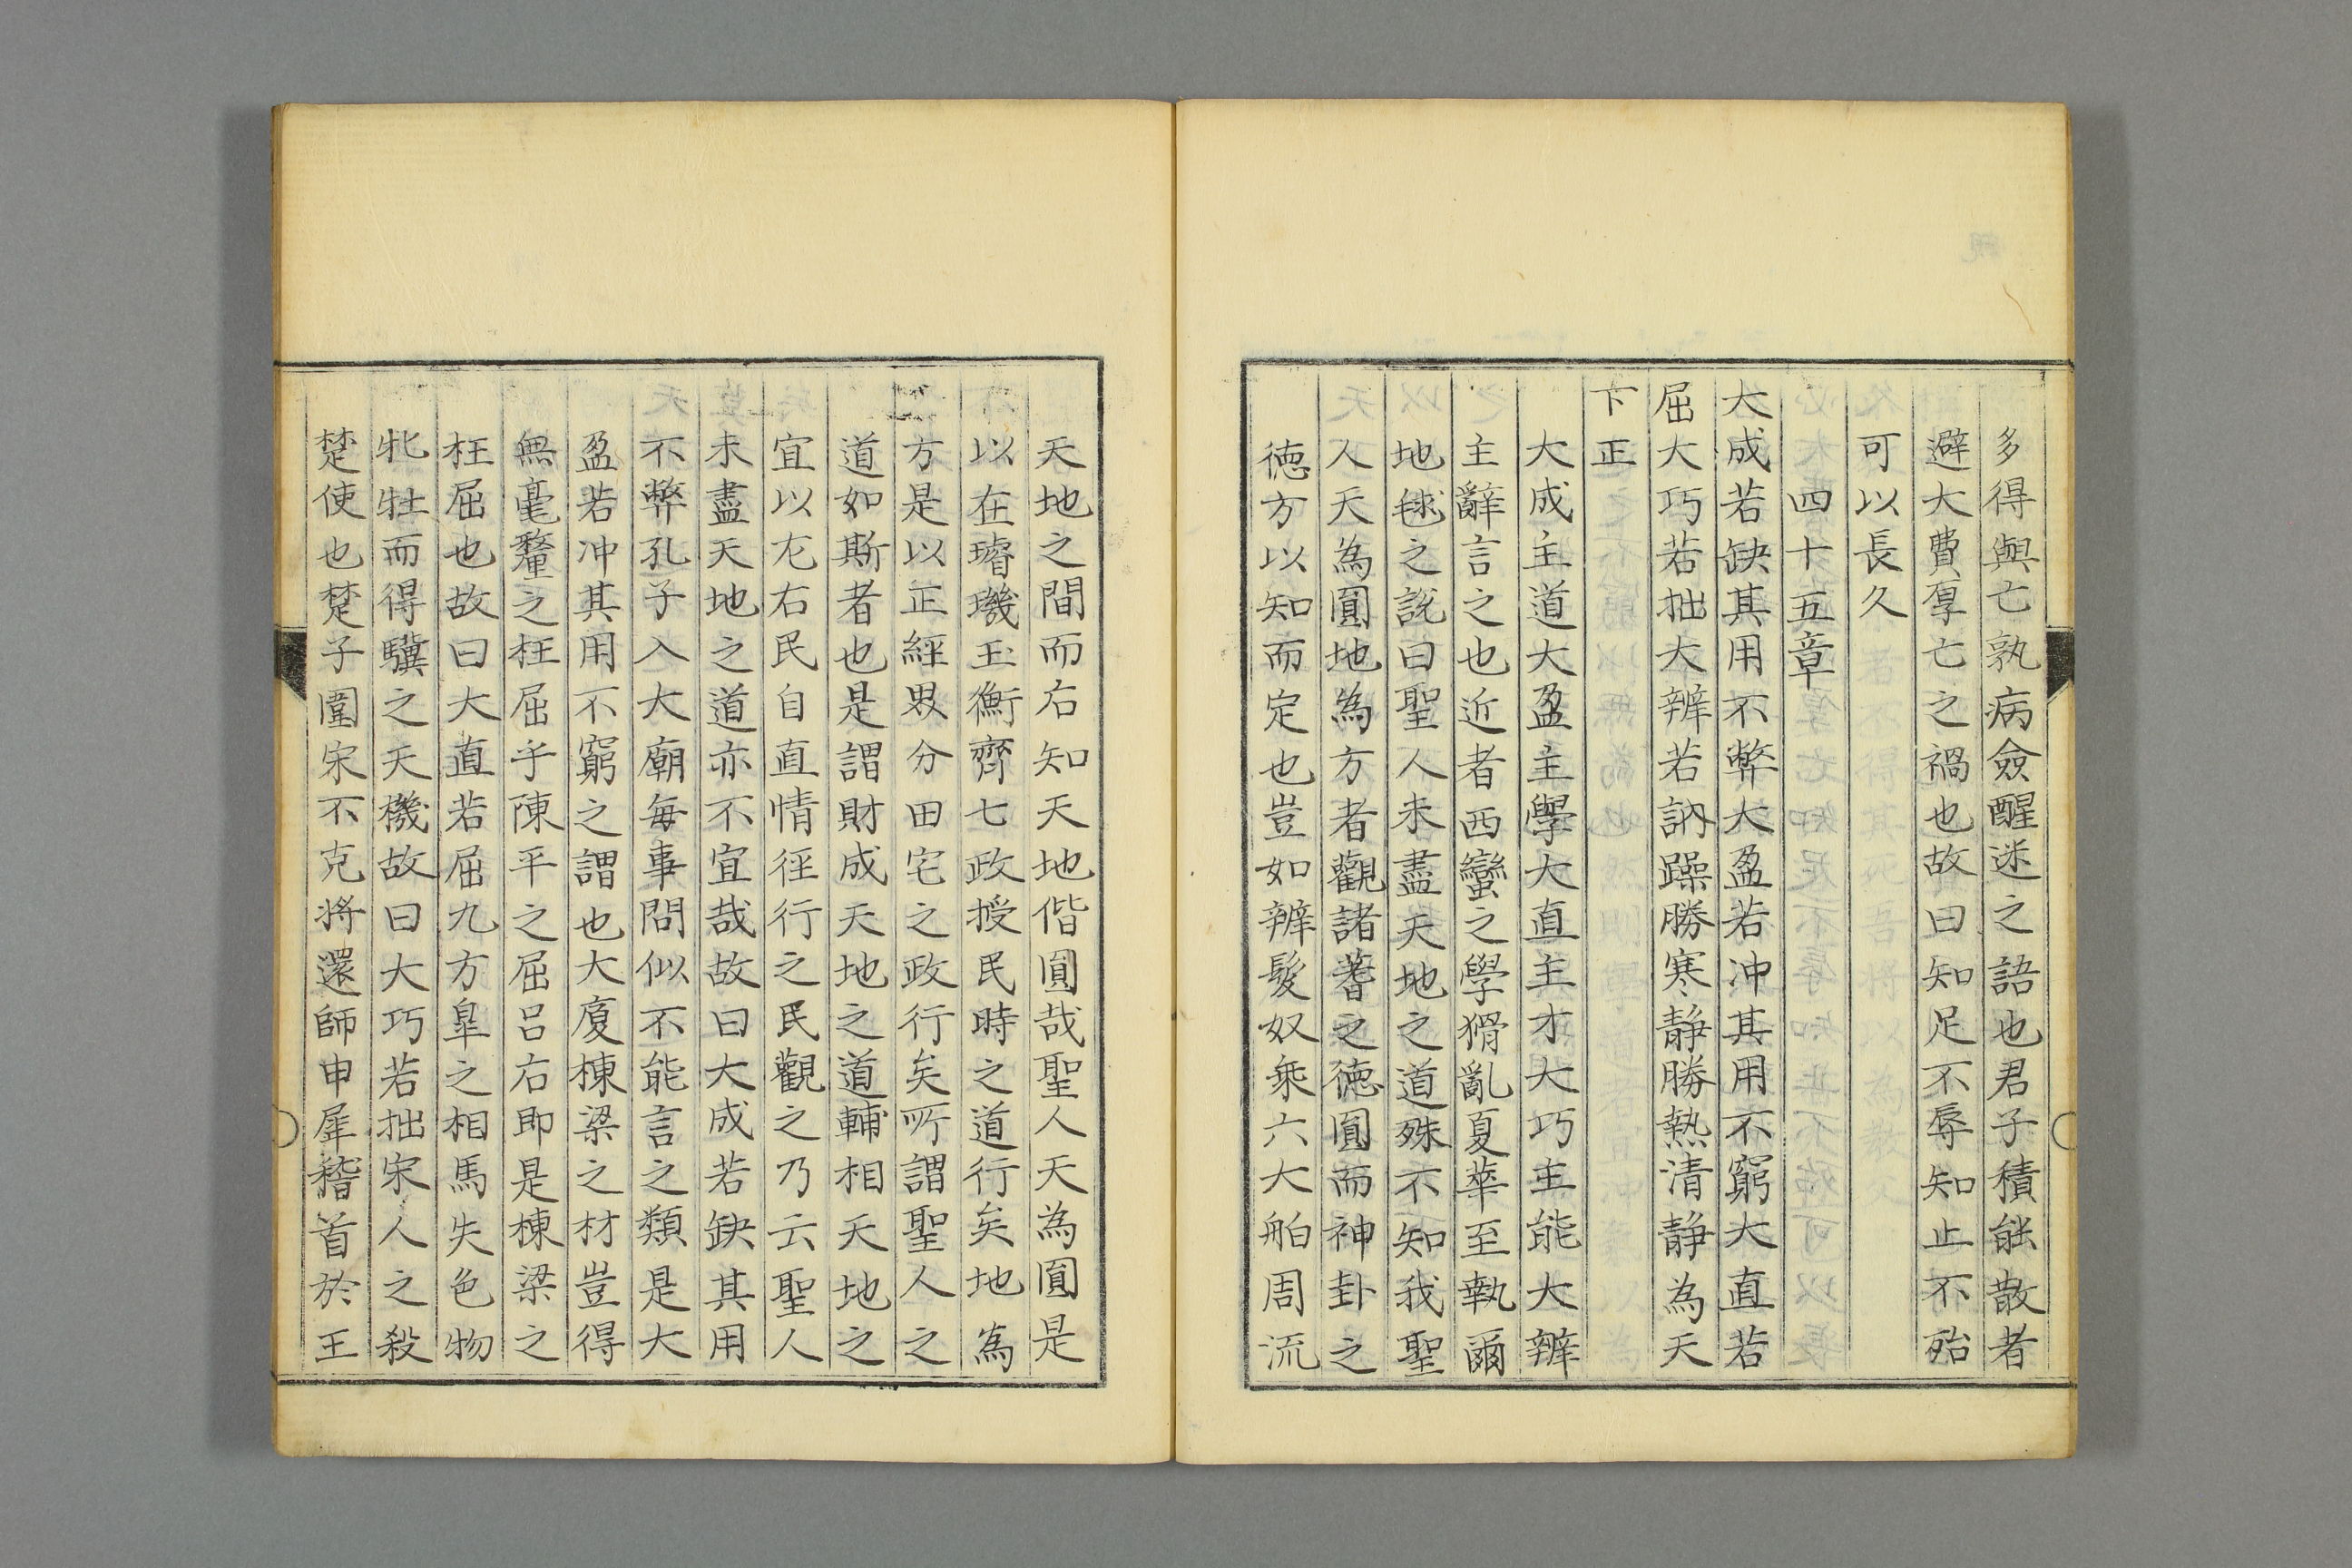 多得與亡孰病僉醒迷之語也君子積能散者
避大費厚亡之禍也故曰知足不辱知止不殆
可以長久
四十五章
大成若缺其用不弊大盈若冲其用不窮大直若
屈大巧若拙大辨若訥躁勝寒静勝熱清静為天
下正
大成主道大盈主學大直主才大巧主能大辨
主辭言之也近者西蠻之學猾亂夏華至執爾
地毬之說曰聖人未盡天地之道殊不知我聖
人天為圓地為方者觀諸蓍之德圓而神卦之
德方以知而定也豈如辨髮奴乘六大舶周流
天地之間而右知天地偕圓哉聖人天為圓是
以在璿璣玉衡齊七政授民時之道行矣地為
方是以正經界分田宅之政行矣所謂聖人之
道如斯者也是謂財成天地之道輔相天地之
宜以左右民自直情徑行之民觀之乃云聖人
未盡天地之道亦不宜哉故曰大成若缺其用
不弊孔子入大廟每事問似不能言之類是大
盈若冲其用不窮之謂也大廈棟梁之材豈得
無毫釐之枉屈乎陳平之屈呂右即是棟梁之
枉屈也故曰大直若屈九方皐之相馬失色物
牝牡而得驥之天機故曰大巧若拙宋人之殺
楚使也楚子圍宋不克將還師申犀稽首於王